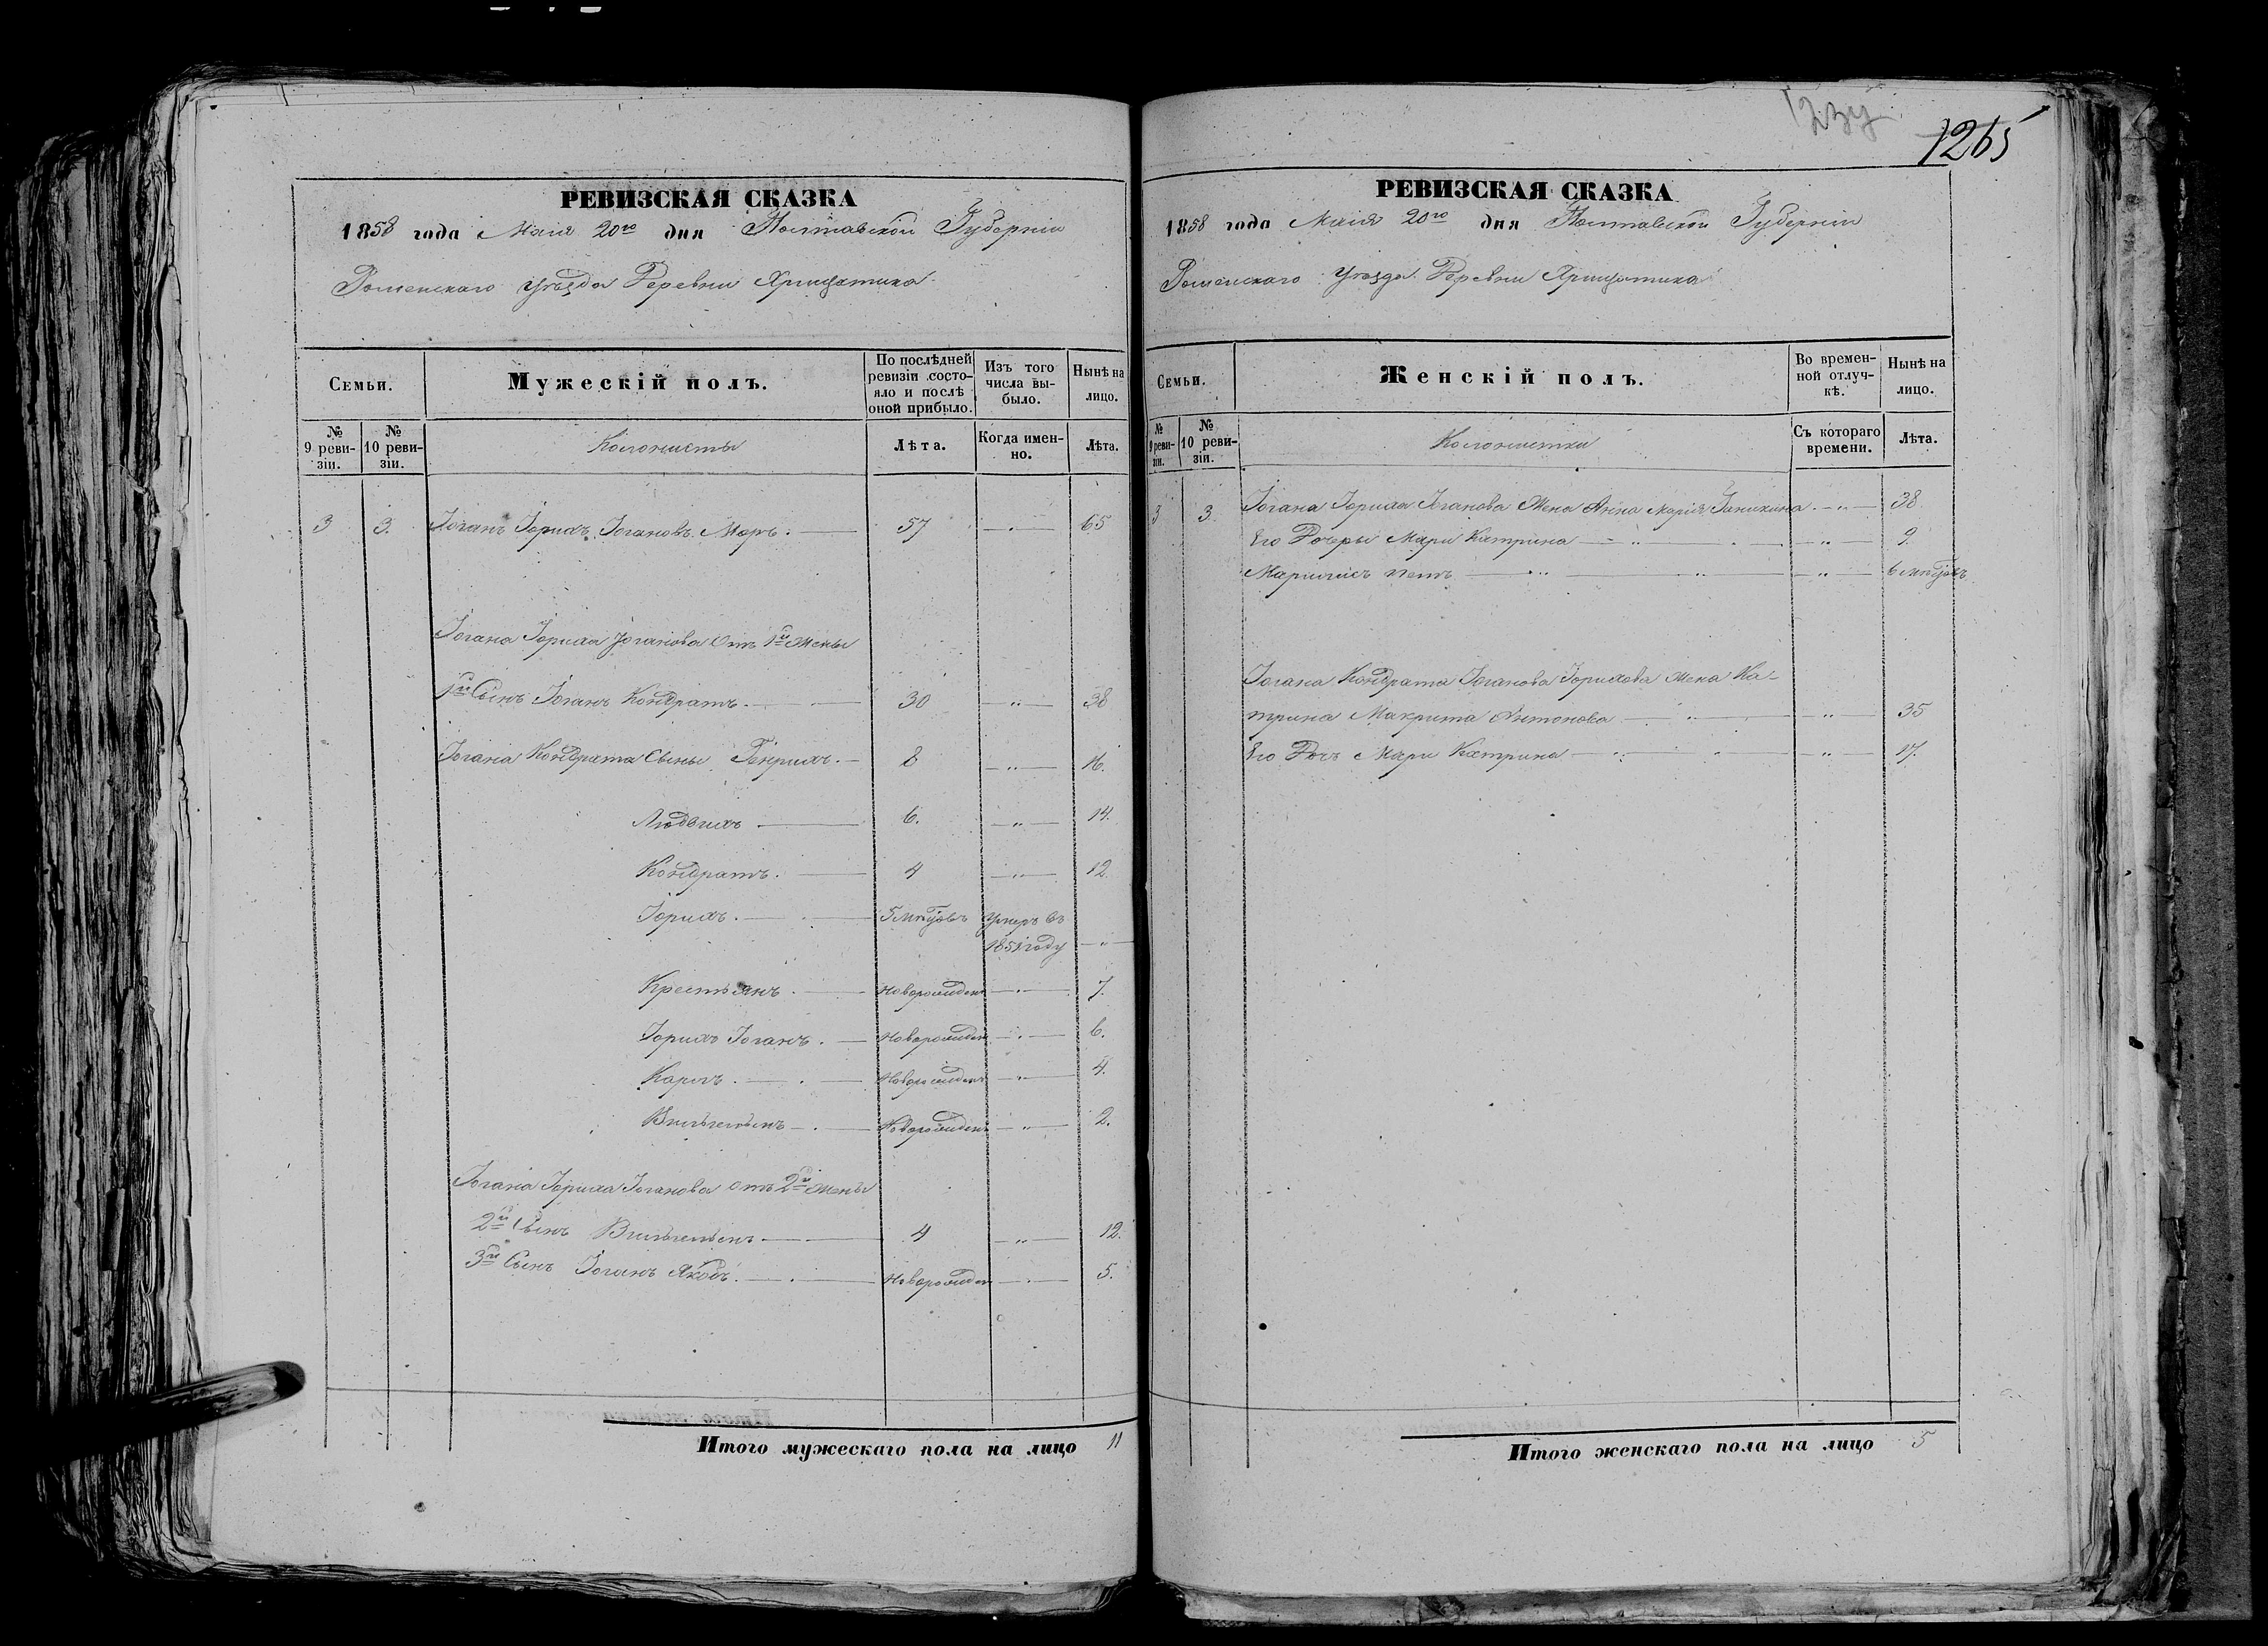 РЕВИЗСКАЯ СКАЗКА
1858 года Маія 20го дня Полтавской Губерніи
Роменскаго уѣзда Деревни
Семьи.
Мужескій полъ.
По послѣдней ревизіи состояло и послѣ оной прибыло.
Изъ того числа выбыло.
Нынѣ на лицо.
№ 9 ревизіи.
№ 10 ревизіи.
Колонисты
Лѣта.
Когда именно.
Лѣта.
3 3. Іоганъ Іорихъ Іогановъ 57 65
Іогана Іориха Іоганова отъ 1й жены
1й Сынъ Іоганъ Кондратъ 30 " 38
Іогана Кондрата Сыны Генрихъ 8 " 16.
Людвихъ 6. " 14.
Кондратъ. 4 " 12.
Іорихъ. 5 мѣсяц. умеръ въ
1851 году "
Крестьянъ. Новорожден " 7.
Іорихъ Іоганъ. Новорожден " 6.
Карлъ. Новорожден " 4.
Вильгельмъ Новорожден " 2.
Іогана Іориха Іоганова отъ 2й жены
2й Сынъ Вильгельмъ 4 " 12.
3й Сынъ Іоганъ Якобъ. Новорожден " 5.
Итого мужескаго пола на лицо 11
1265
РЕВИЗСКАЯ СКАЗКА
1858 года Маія 20го дня Полтавской Губерніи
Роменскаго уѣзда Деревни
Семьи.
Женскій полъ.
Во временной отлучкѣ.
Нынѣ на лицо.
№ 9 ревизіи.
№ 10 ревизіи.
Колонистки
Съ котораго времени.
Лѣта.
3 3. Іогана Іориха Іоганова жена Анна Марія " 38
Его Дочеры Мари Катрина " " 9.
" " " 6
Іогана Кондрата Іоганова Іорихова жена Ка-
трина Макрита Антонова " " 35
Его Дочь Мари Катрина " " " 17.
Итого женскаго пола на лицо 5